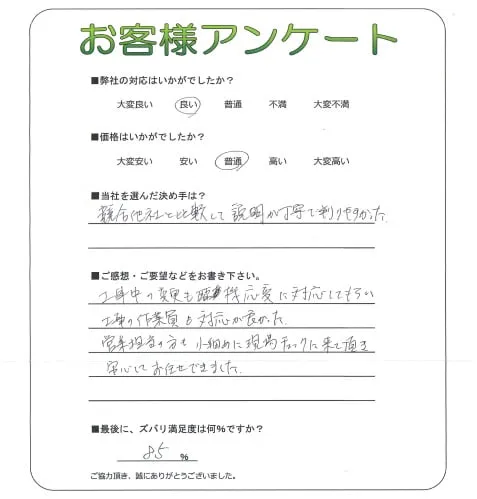 お客様アンケート
■弊社の対応はいかがでしたか？
大変良い 良い 普通 不満 大変不満
■価格はいかがでしたか？
大変安い 安い 普通 高い 大変高い
■当社を選んだ決め手は？
競合他社と比較して説明が丁寧で判りやすかった。
■ご感想・ご要望などをお書き下さい。
工事中の変更も臨機応変に対応してもらい
工事の作業員も対応が良かった。
営業担当の方も小細めに現場チェックに来て頂き
安心してお任せできました。
■最後に、ズバリ満足度は何%ですか？
85 %
ご協力頂き、誠にありがとうございました。